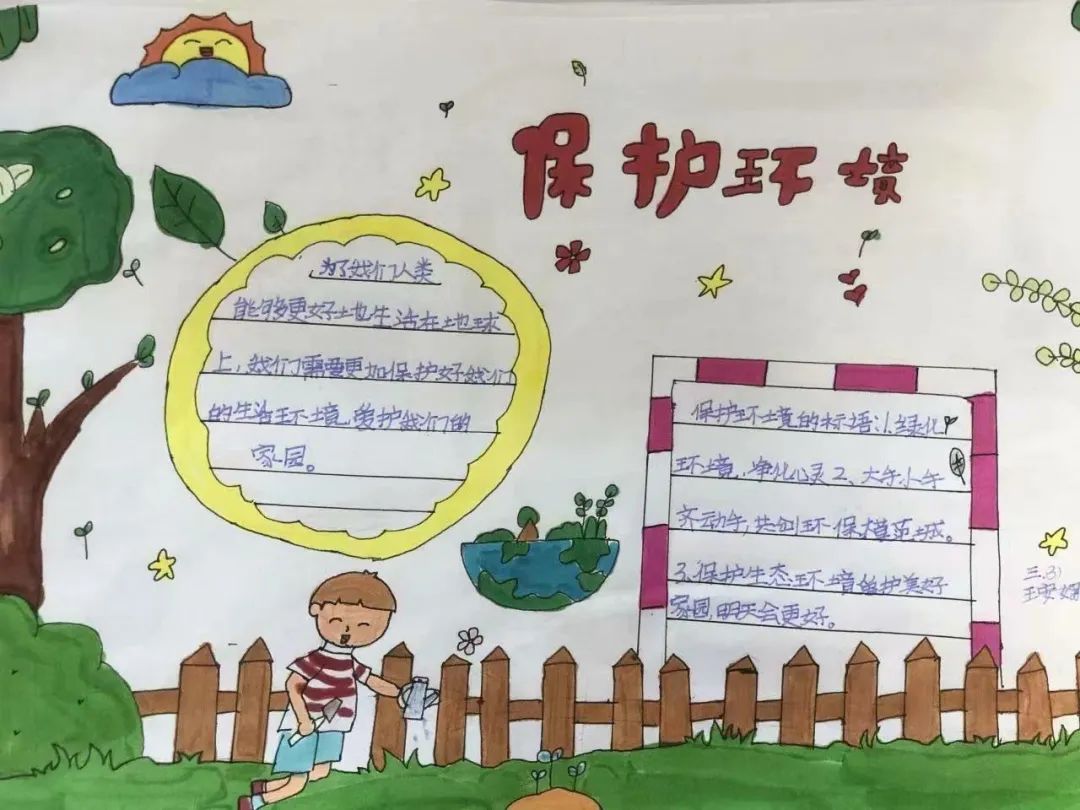 保护环境
为了我们人类
能够更好地生活在地球
上，我们需要更加保护好我们
的生活环境，爱护我们的
家园。
保护环境的标语：1.绿化
环境，净化心灵 2、大手小手
齐动手，共创环保模范城。
3.保护生态环境维护美好
家园，明天会更好。
三.3)